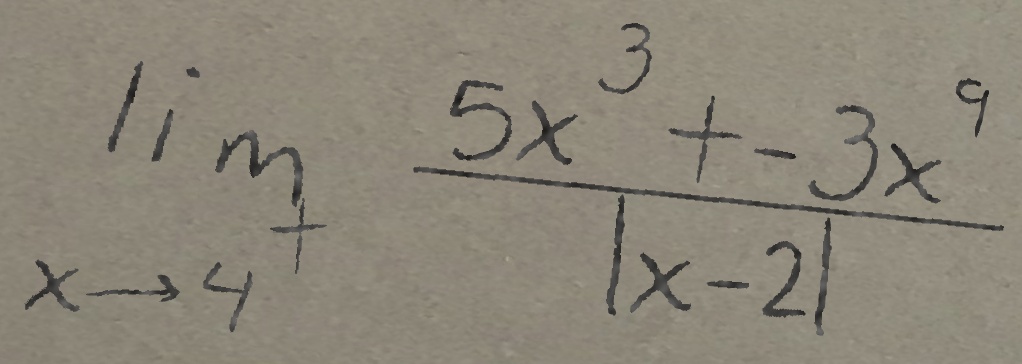 lim_{x \to 4^+} \frac{5x^3 + -3x^9}{|x-2|}